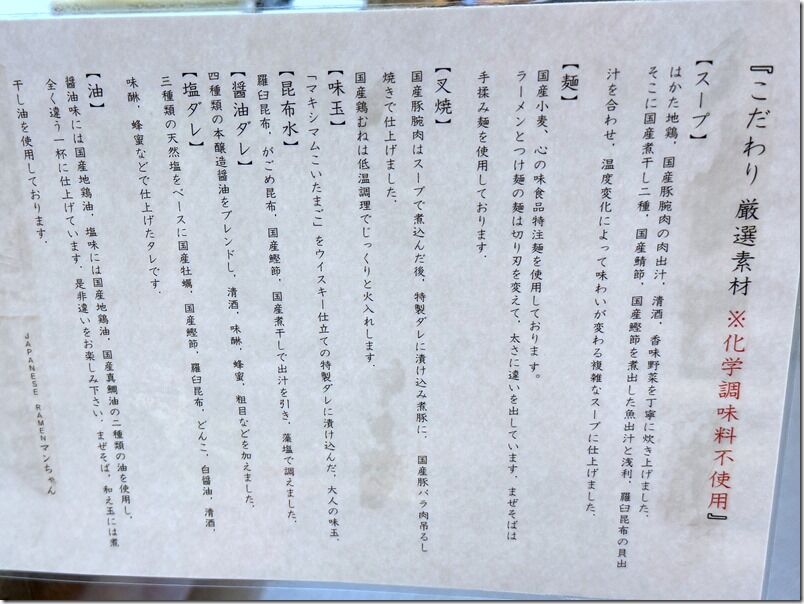 『こだわり 厳選素材 ※化学調味料不使用』
【スープ】
はかた地鶏，国産豚腕肉の肉出汁，清酒，香味野菜を丁寧に炊き上げました．
そこに国産煮干し二種，国産鯖節，国産鰹節を煮出した魚出汁と浅利，羅臼昆布の貝出
汁を合わせ，温度変化によって味わいが変わる複雑なスープに仕上げました．
【麺】
国産小麦、心の味食品特注麺を使用しております。
ラーメンとつけ麺の麺は切り刃を変えて，太さに違いを出しています．まぜそばは
手揉み麺を使用しております．
【叉焼】
国産豚腕肉はスープで煮込んだ後，特製ダレに漬け込み煮豚に，国産豚バラ肉吊るし
焼きで仕上げました．
国産鶏むねは低温調理でじっくりと火入れします．
【味玉】
「マキシマムこいたまご」をウイスキー仕立ての特製ダレに漬け込んだ，大人の味玉．
【昆布水】
羅臼昆布，がごめ昆布，国産鰹節，国産煮干しで出汁を引き，藻塩で調えました．
【醤油ダレ】
四種類の本醸造醤油をブレンドし，清酒，味醂，蜂蜜，粗目などを加えました．
【塩ダレ】
三種類の天然塩をベースに国産牡蠣，国産鰹節，羅臼昆布，どんこ，白醤油，清酒，
味醂，蜂蜜などで仕上げたタレです．
【油】
醤油味には国産地鶏油，塩味には国産地鶏油，国産真鯛油の二種類の油を使用し，
全く違う一杯に仕上げています．是非違いをお楽しみ下さい．まぜそば，和え玉には煮
干し油を使用しております．
JAPANESE RAMEN マンちゃん